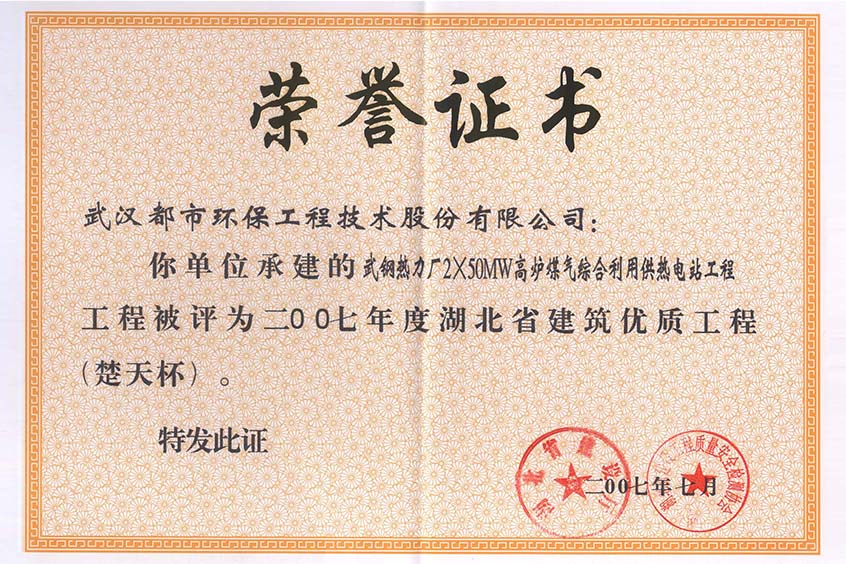 荣誉证书
武汉都市环保工程技术股份有限公司：
你单位承建的武钢热力厂2×50MW高炉煤气综合利用供热电站工程
工程被评为二00七年度湖北省建筑优质工程
（楚天杯）。
特发此证
湖北省建设厅
工程质量安全检测协会
二00七年七月